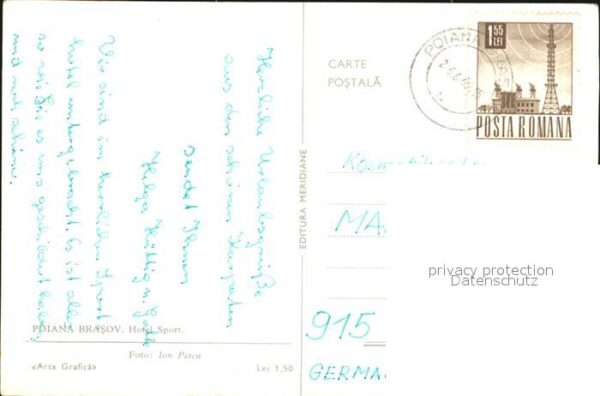 Herzliche Urlaubsgrüße
aus den schönen Karpaten
sendet Ihnen
Helga
Wir sind im herrlichen Sport
hotel untergebracht. Es ist alles
so wie Sie es uns geschildert haben,
und sehr schön.
POIANA BRAȘOV. Hotel Sport.
Foto: Ion Petcu
«Arta Grafică»
Lei 1,50
EDITURA MERIDIANE
CARTE
POȘTALĂ
POIANA
1 55
LEI
POSTA ROMANA
MA
915
GERMA
privacy protection
Datenschutz